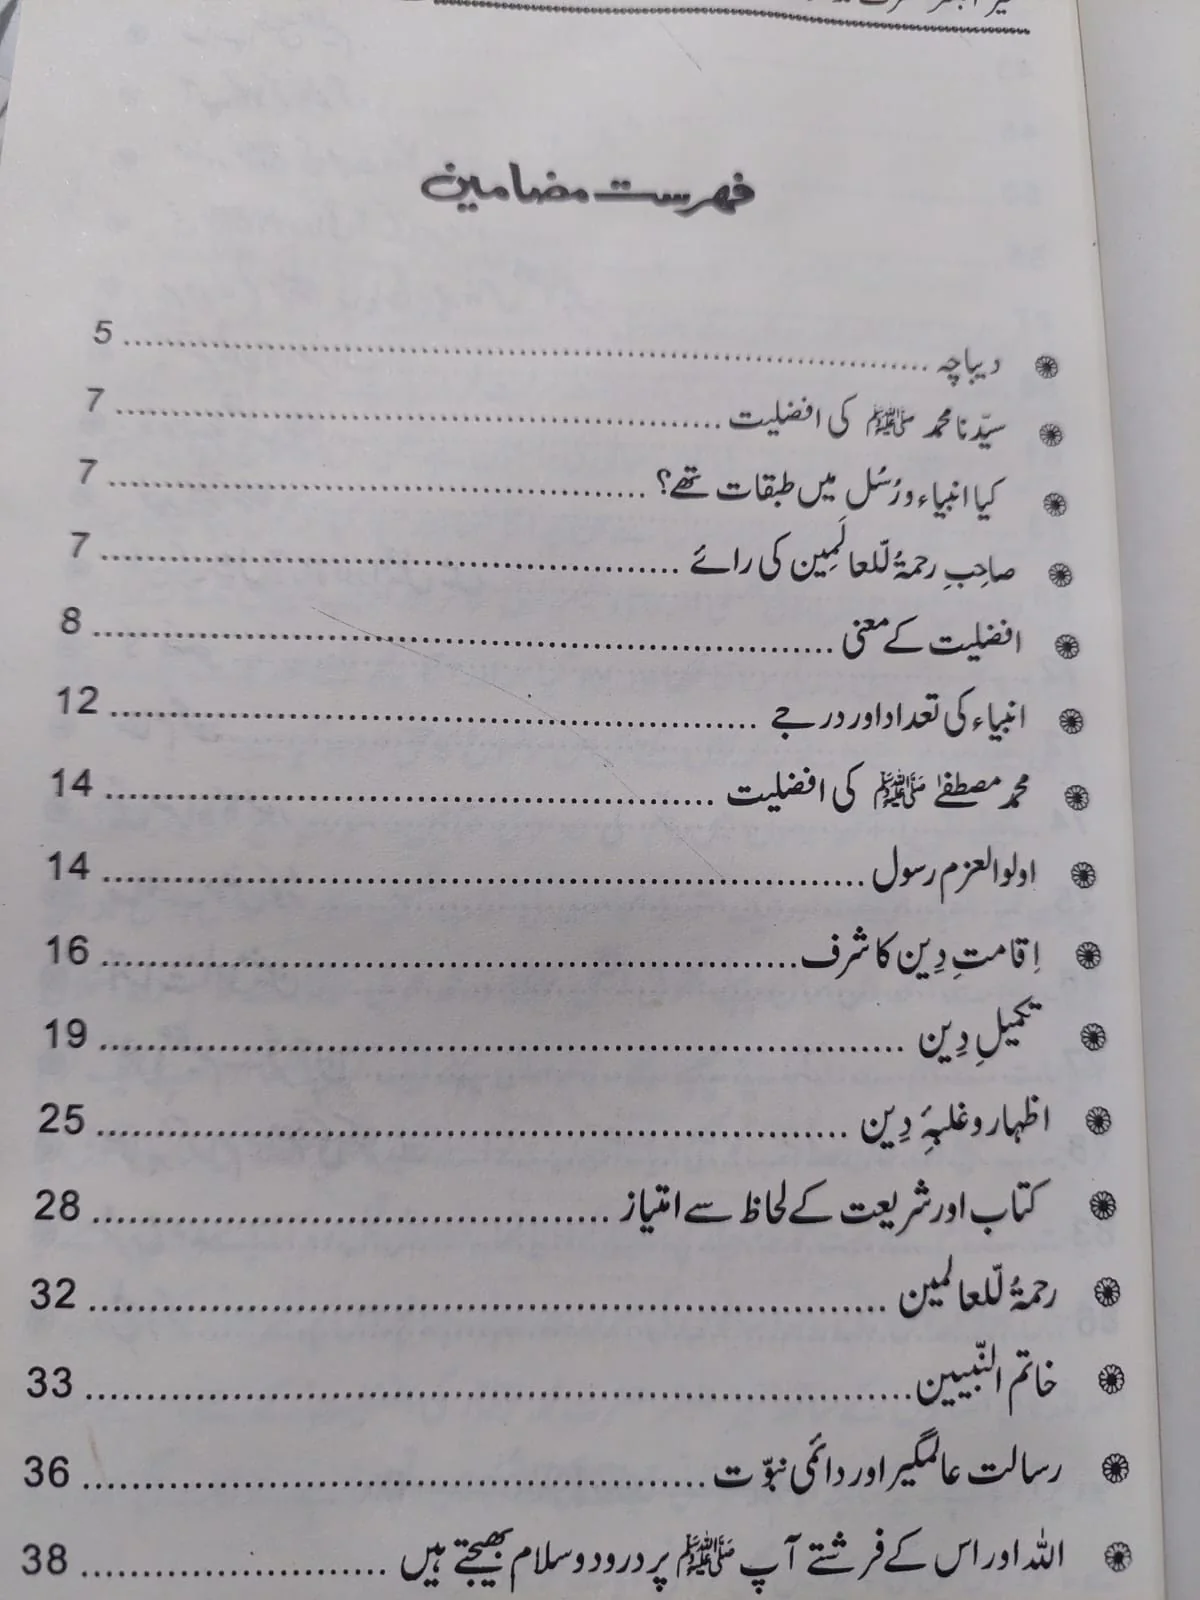 فہرست مضامین
دیباچہ 5
سیّدنا محمد ﷺ کی افضلیت 7
کیا انبیاء و رُسُل میں طبقات تھے؟ 7
صاحِبِ رحمۃُ لّلعالَمِین کی رائے 7
افضلیت کے معنی 8
انبیاء کی تعداد اور درجے 12
محمد مصطفےٰ ﷺ کی افضلیت 14
اولوالعزم رسول 14
اِقامتِ دِین کا شرف 16
تکمیلِ دِین 19
اظہار و غلبۂِ دِین 25
کتاب اور شریعت کے لحاظ سے امتیاز 28
رحمۃُ لّلعالمین 32
خاتم النّبیین 33
رسالت عالمگیر اور دائمی نبوّت 36
اللہ اور اس کے فرشتے آپ ﷺ پر درود و سلام بھیجتے ہیں 38